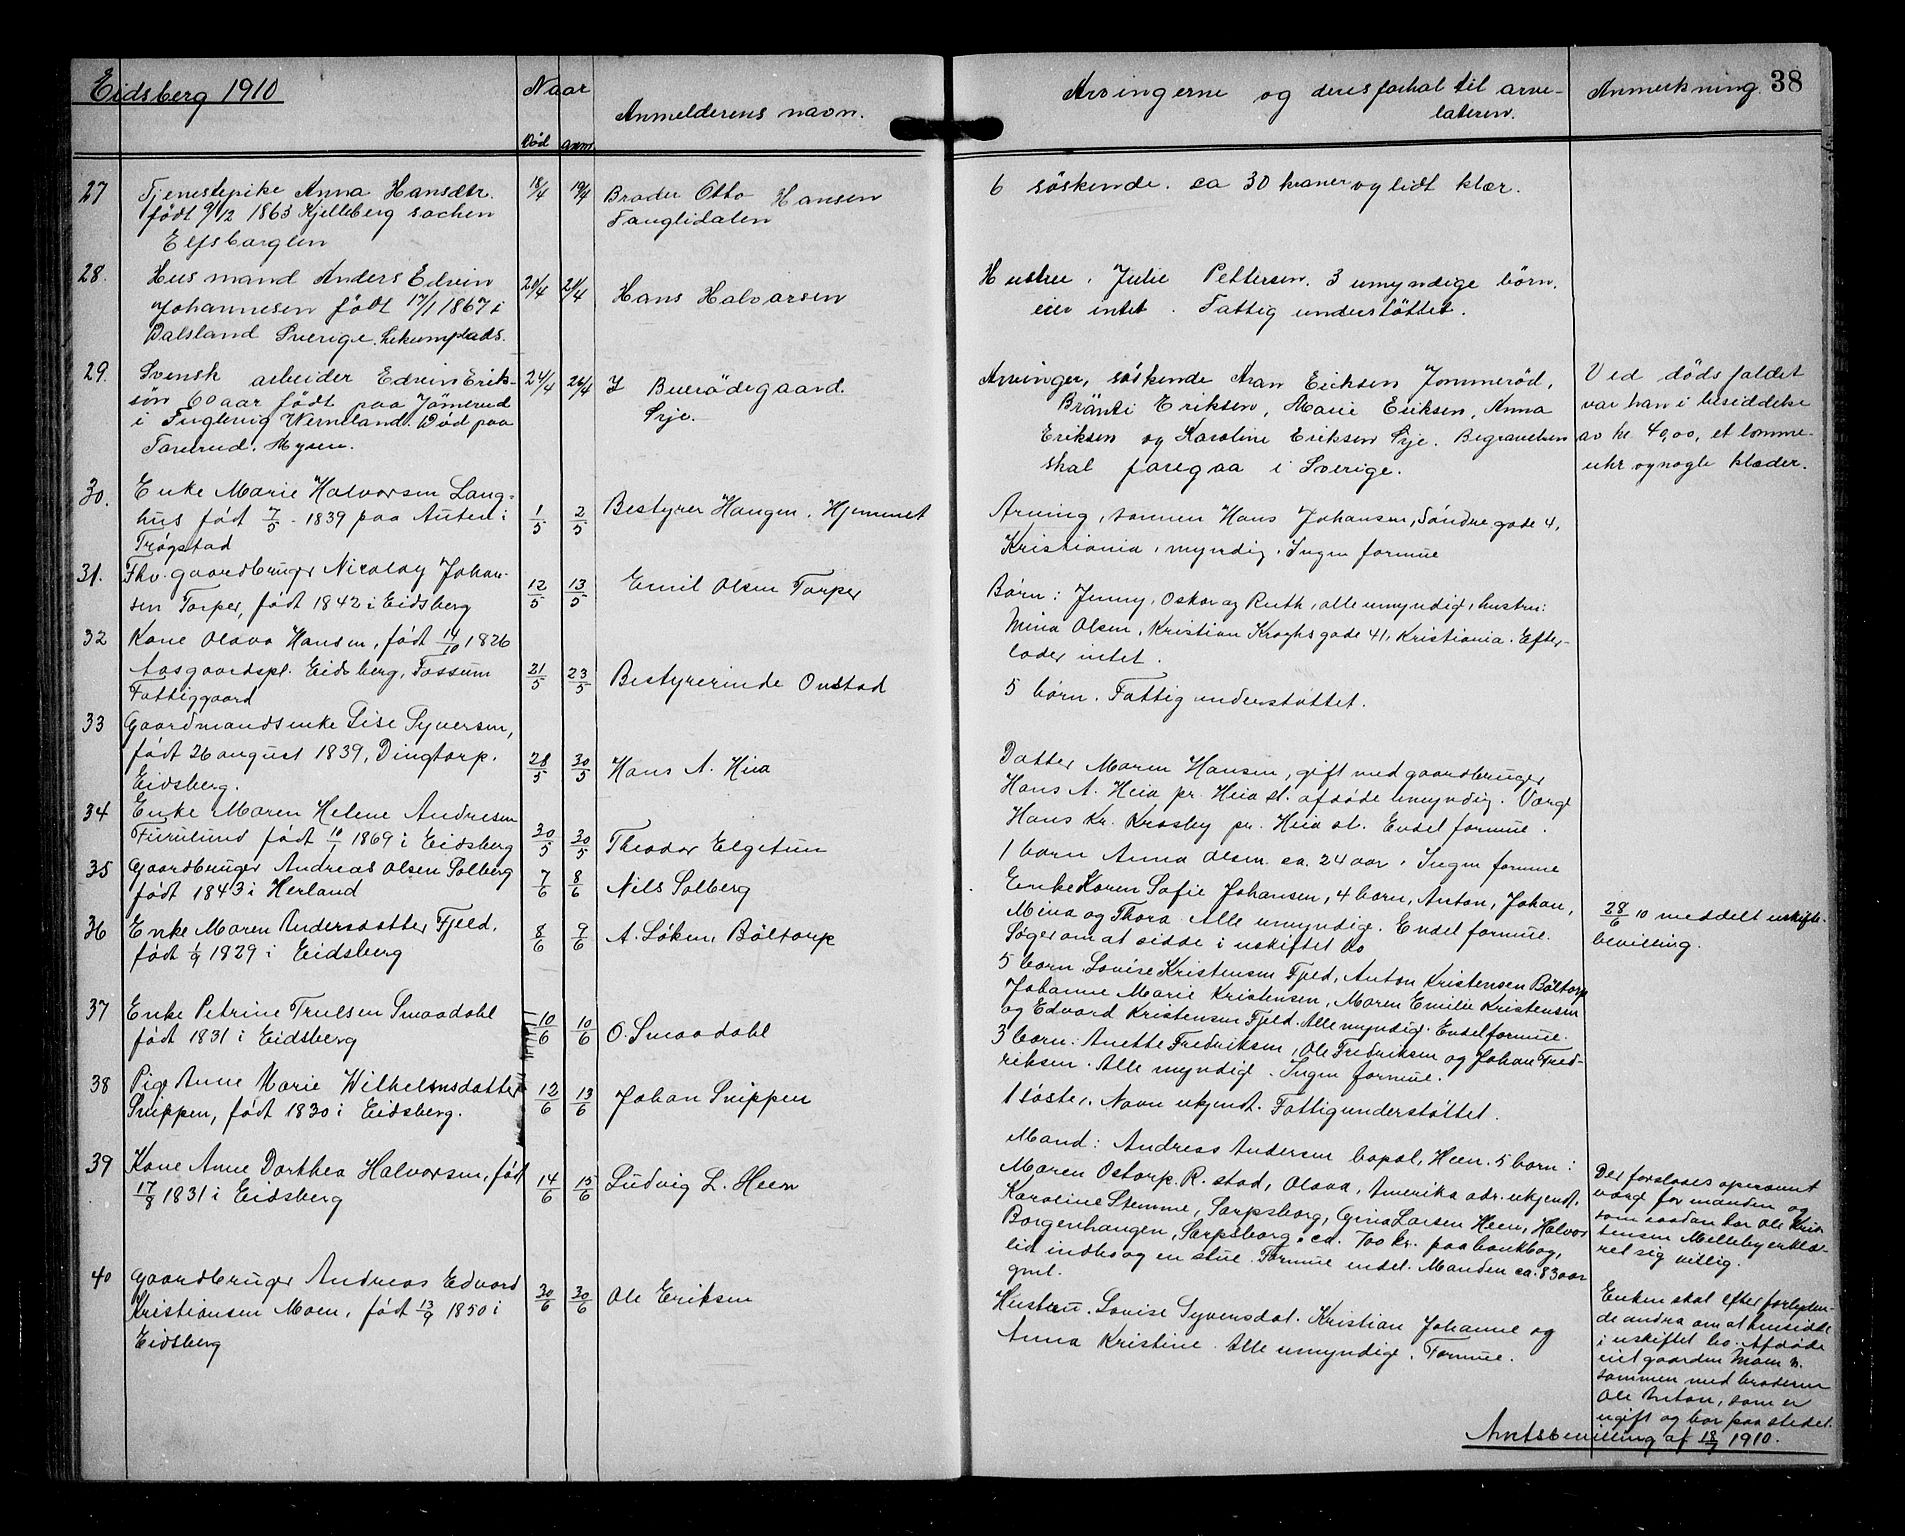 Eidsberg 1910
Naar
Død anm
Anmelderens navn.
Arvingerne og deres forhol til arve-
lateren.
Anmerkning. 38
27 Tjenestepike Anna Hansdtr. 18/4 19/4 Broder Otto Hansen 6 søskende. ca 30 kroner og lidt klær.
født 9/12 1863 Kjelleberg sochen
28. Husmand Anders Edvin 20/4 21/4 Hans Halvorsen Hustru. Julie Pettersen. 3 umyndige børn.
Johannesen født 17/1 1867 i eier intet. Fattig understøttet.
Dalsland Sverige.
29. Svensk arbeider Edvin Erik- 24/4 26/4 Arvinger, søskende Eriksen
søn 60 aar født paa Eriksen, Marie Eriksen, Anna
i Wermland. Død paa Eriksen og Karoline Eriksen. Begravelsen
Mysen. skal foregaa i Sverige.
Ved dødsfaldet
var han i besiddelse
av kr. 40,00, et lomme-
uhr og nogle klæder.
30. Enke Marie Halvorsen Lang- 1/5 2/5 Bestyrer Haugen. Hjemmet Arving, sønnen Hans Johansen, Søndre gade 4,
hus født 7/5 - 1839 paa i Kristiania, myndig. Ingen formue
Trøgstad
31. Fhv. gaardbruger Nicolay Johan- 12/5 13/5 Emil Olsen Torper Børn: Jenny, Oskar og Ruth, alle umyndig, hustru:
sen Torper, født 1842 i Eidsberg Mina Olsen, Kristian Kroghs gade 41, Kristiania. Efter-
lader intet.
32 Kone Olava Hansen, født 14/10 1826 21/5 23/5 Bestyrerinde Onstad 5 børn. Fattigunderstøttet.
Aasgaardspl. Eidsberg, Fossum
Fattiggaard
33 Gaardmandsenke Lise Syversen, 28/5 30/5 Hans A. Heia Datter Maren Hansen, gift med gaardbruger
født 26 august 1839, Dingtorp. Hans A. Heia pr. Heia st. afdøde umyndig. Værge
Eidsberg. Hans Kr. Krosby pr. Heia st. Endel formue.
34 Enke Maren Helene Andresen 30/5 30/5 Theodor Elgetun 1 barn Anna Olsen ca. 24 aar. Ingen formue
Furulund født 10/1 1869 i Eidsberg
35 Gaardbruger Andreas Olsen Solberg 7/6 8/6 Nils Solberg Enke Karen Sofie Johansen, 4 børn, Anton, Johan,
født 1843 i Herland Mina og Thora. Alle umyndige. Endel formue.
Søger om at sidde i uskiftet bo
28/6 10 meddelt uskifte-
bevilling.
36 Enke Maren Andersdatter Fjeld, 8/6 9/6 A. Løken, Bøltorp 5 børn Lovise Kristensen Fjeld, Anton Kristensen Bøltorp
født 1/9 1829 i Eidsberg Johanne Marie Kristensen, Maren Emilie Kristensen
og Edvard Kristensen Fjeld. Alle myndig. Endel formue.
37 Enke Petrine Trulsen Smaadahl 10/6 10/6 O. Smaadahl 3 børn: Anette Fredriksen, Ole Fredriksen og Johan Fred-
født 1831 i Eidsberg riksen. Alle myndig. Ingen formue.
38 Pige Anne Marie Wilhelmsdatter 12/6 13/6 Johan Snippen 1 søster. Navn ukjendt. Fattigunderstøttet.
Snippen, født 1830 i Eidsberg.
39 Kone Anne Dorthea Halvorsen, født 14/6 15/6 Ludvig L. Heen Mand: Andreas Andersen bopæl, Heen. 5 børn:
17/8 1831 i Eidsberg Maren Ostorp. R.stad, Olava, Amerika adr. ukjendt,
Karoline Stemme, Sarpsborg, Gina Larsen Heen, Halvor
Borgenhaugen, Sarpsborg. ca. 700 kr. paa bankbog,
lit indbo og en stue. Formue endel. Manden ca. 83 aar
gml.
Der forslaaes opnævnt
værge for manden og
som saadan har Ole Kris-
tensen Melleby erklæ-
ret sig villig.
40 Gaardbruger Andreas Edvard 30/6 30/6 Ole Eriksen Hustru. Lovise Syversdat. Kristian Johanne og
Kristiansen Moen, født 13/9 1850 i Anna Kristine. Alle umyndig. Formue.
Eidsberg
Enken skal efter forlyden-
de andra om at hensidde
i uskiftet bo. Afdøde
eiet gaarden Moen n.
sammen med broderen
Ole Anton, som er
ugift og bor paa stedet.
Amtsbevilling af 18/7 1910.